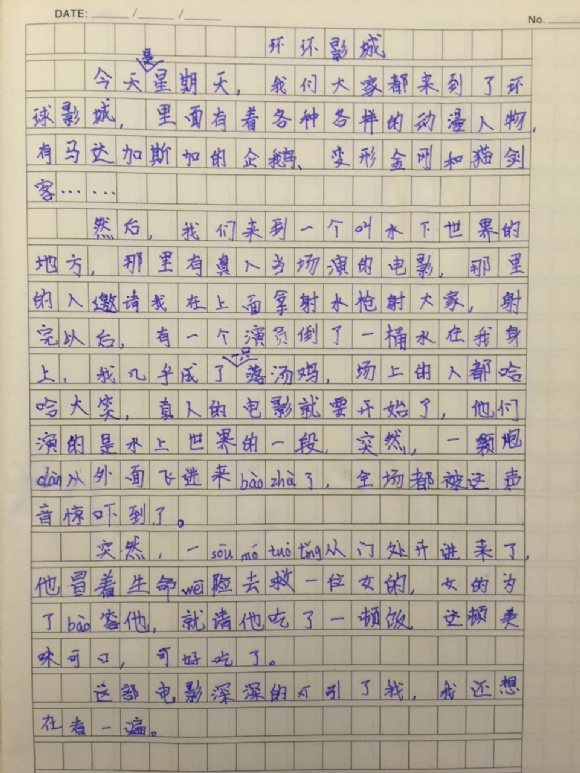 DATE: ____/____/____
No.
环环影城
今天是星期天，我们大家都来到了环
球影城，里面有着各种各样的动漫人物，
有马达加斯加的企鹅、变形金刚和猫剑
客……
然后，我们来到一个叫水下世界的
地方，那里有真人当场演的电影，那里
的人邀请我在上面拿射水枪射大家，射
完以后，有一个演员倒了一桶水在我身
上，我几乎成了一只落汤鸡，场上的人都哈
哈大笑，真人的电影就要开始了，他们
演的是水上世界的一段，突然，一颗炮
dàn从外面飞进来bào zhà了，全场都被这声
音惊吓到了。
突然，一sōu mó tuō tǐng从门处开进来了，
他冒着生命wēi险去救一位女的，女的为
了bào答他，就请他吃了一顿饭，这顿美
味可口，可好吃了。
这部电影深深的吸引了我，我还想
在看一遍。